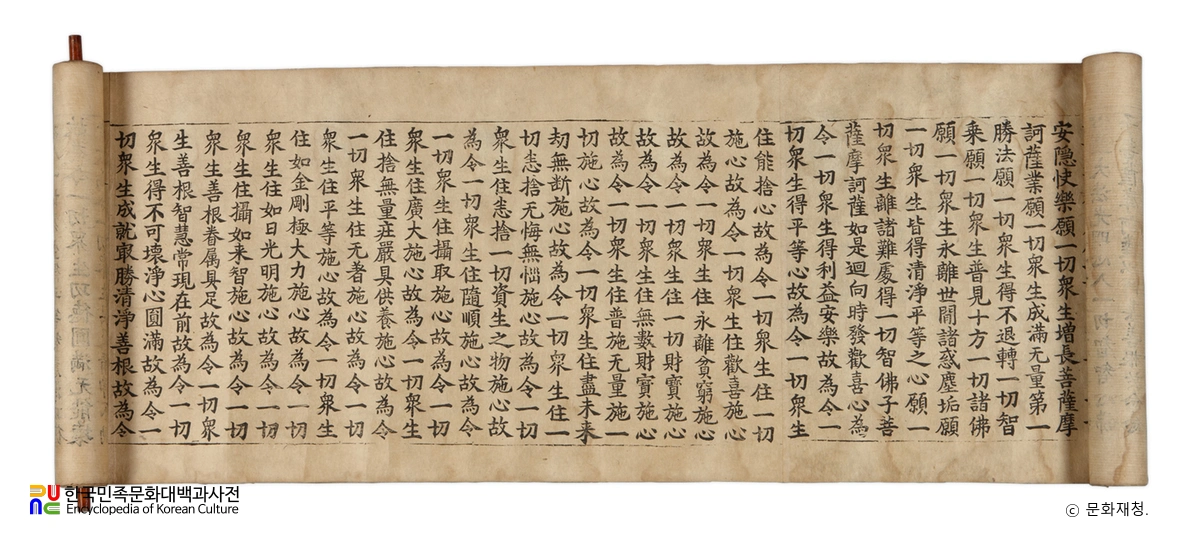 安隱快樂願一切衆生增長菩薩摩
訶薩業願一切衆生成滿无量第一
勝法願一切衆生得不退轉一切智
乗願一切衆生普見十方一切諸佛
願一切衆生永離世間諸惑塵垢願
一切衆生皆得清淨平等之心願一
切衆生離諸難處得一切智佛子菩
薩摩訶薩如是迴向時發歡喜心為
令一切衆生得利益安樂故為令一
切衆生得平等心故為令一切衆生
住能捨心故為令一切衆生住一切
施心故為令一切衆生住歡喜施心
故為令一切衆生住永離貧窮施心
故為令一切衆生住一切財寶施心
故為令一切衆生住無數財寳施心
故為令一切衆生住普施无量施一
切施心故為令一切衆生住盡未来
劫無断施心故為令一切衆生住一
切悉捨无悔無惱施心故為令一切
衆生住悉捨一切資生之物施心故
為令一切衆生住隨順施心故為令
一切衆生住攝取施心故為令一切
衆生住廣大施心故為令一切衆生
住捨無量莊嚴具供養施心故為令
一切衆生住无著施心故為令一切
衆生住平等施心故為令一切衆生
住如金剛極大力施心故為令一切
衆生住如日光明施心故為令一切
衆生住攝如来智施心故為令一切
衆生善根眷属具足故為令一切衆
生善根智慧常現在前故為令一切
衆生得不可壞淨心圎滿故為令一
切衆生成就㝡勝清淨善根故為令
한국민족문화대백과사전
Encyclopedia of Korean Culture
ⓒ 문화재청.